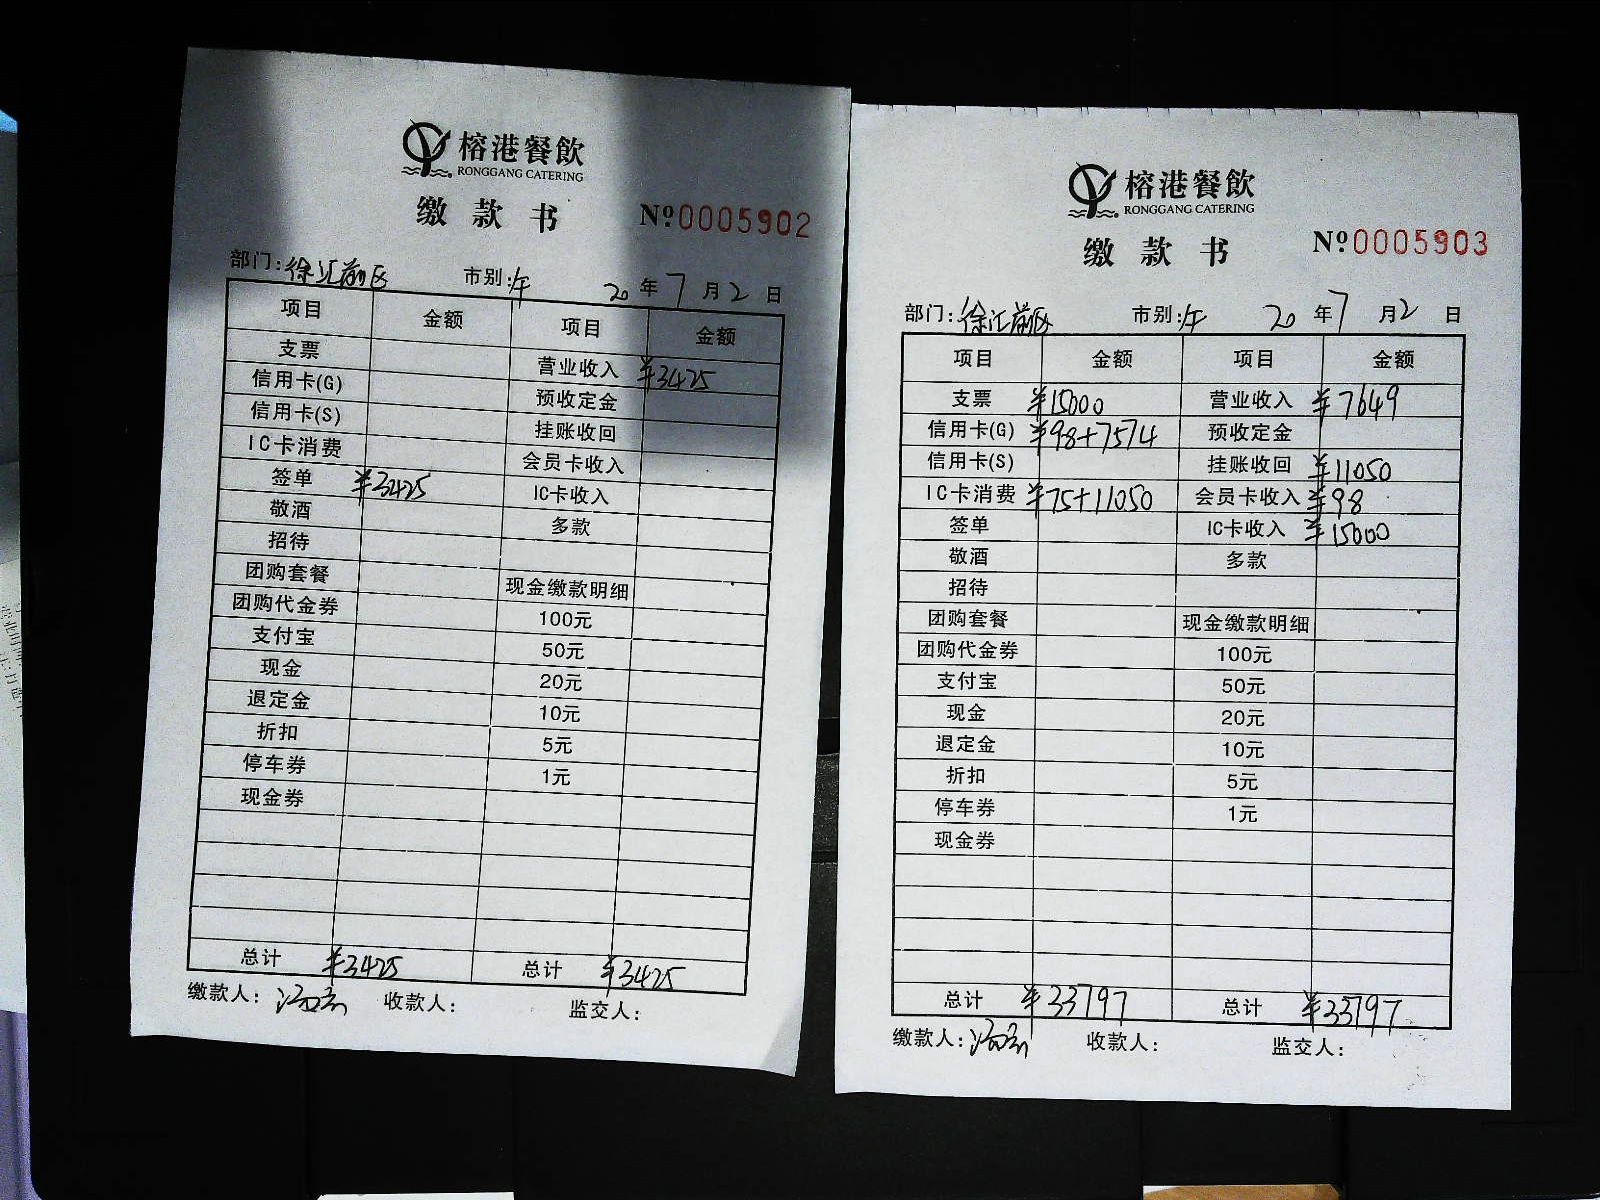 榕港餐飲
RONGGANG CATERING
缴款书 №0005902
部门:徐汇前区 市别:午 20年7月2日
项目 金额 项目 金额
支票 营业收入 ¥3425
信用卡(G) 预收定金
信用卡(S) 挂账收回
IC卡消费 会员卡收入
签单 ¥3425 IC卡收入
敬酒 多款
招待
团购套餐 现金缴款明细
团购代金券 100元
支付宝 50元
现金 20元
退定金 10元
折扣 5元
停车券 1元
现金券
总计 ¥3425 总计 ¥3425
缴款人: 收款人: 监交人:
榕港餐飲
RONGGANG CATERING
缴款书 №0005903
部门:徐汇前区 市别:午 20年7月2日
项目 金额 项目 金额
支票 ¥15000 营业收入 ¥7649
信用卡(G) ¥98+7574 预收定金
信用卡(S) 挂账收回 ¥11050
IC卡消费 ¥75+11050 会员卡收入 ¥98
签单 IC卡收入 ¥15000
敬酒 多款
招待
团购套餐 现金缴款明细
团购代金券 100元
支付宝 50元
现金 20元
退定金 10元
折扣 5元
停车券 1元
现金券
总计 ¥33797 总计 ¥33797
缴款人: 收款人: 监交人: